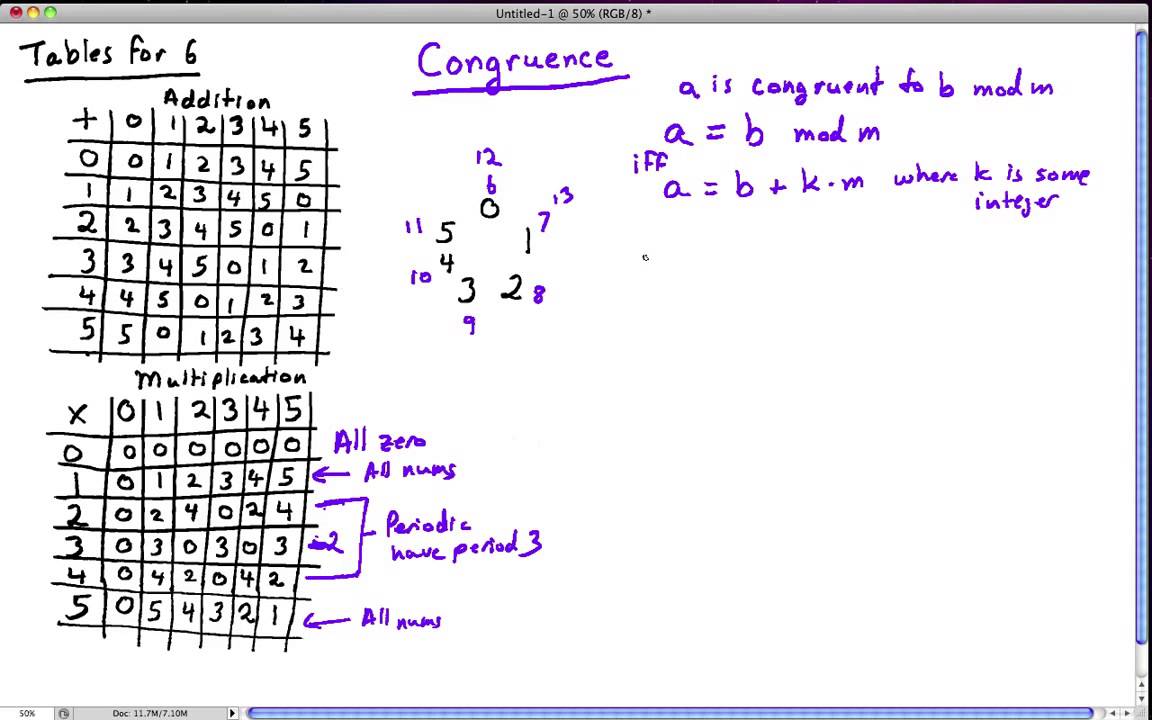 Untitled-1 @ 50% (RGB/8) *
Tables for 6
Addition
+ 0 1 2 3 4 5
0 0 1 2 3 4 5
1 1 2 3 4 5 0
2 2 3 4 5 0 1
3 3 4 5 0 1 2
4 4 5 0 1 2 3
5 5 0 1 2 3 4
Multiplication
x 0 1 2 3 4 5
0 0 0 0 0 0 0 All zero
1 0 1 2 3 4 5 ← All nums
2 0 2 4 0 2 4
3 0 3 0 3 0 3 -2
4 0 4 2 0 4 2
Periodic
have period 3
5 0 5 4 3 2 1 ← All nums
Congruence
12
6
0
13
7
1
2 8
3
9
4
10
11 5
a is congruent to b mod m
a = b mod m
iff
a = b + k·m where k is some
integer
50%
Doc: 11.7M/7.10M